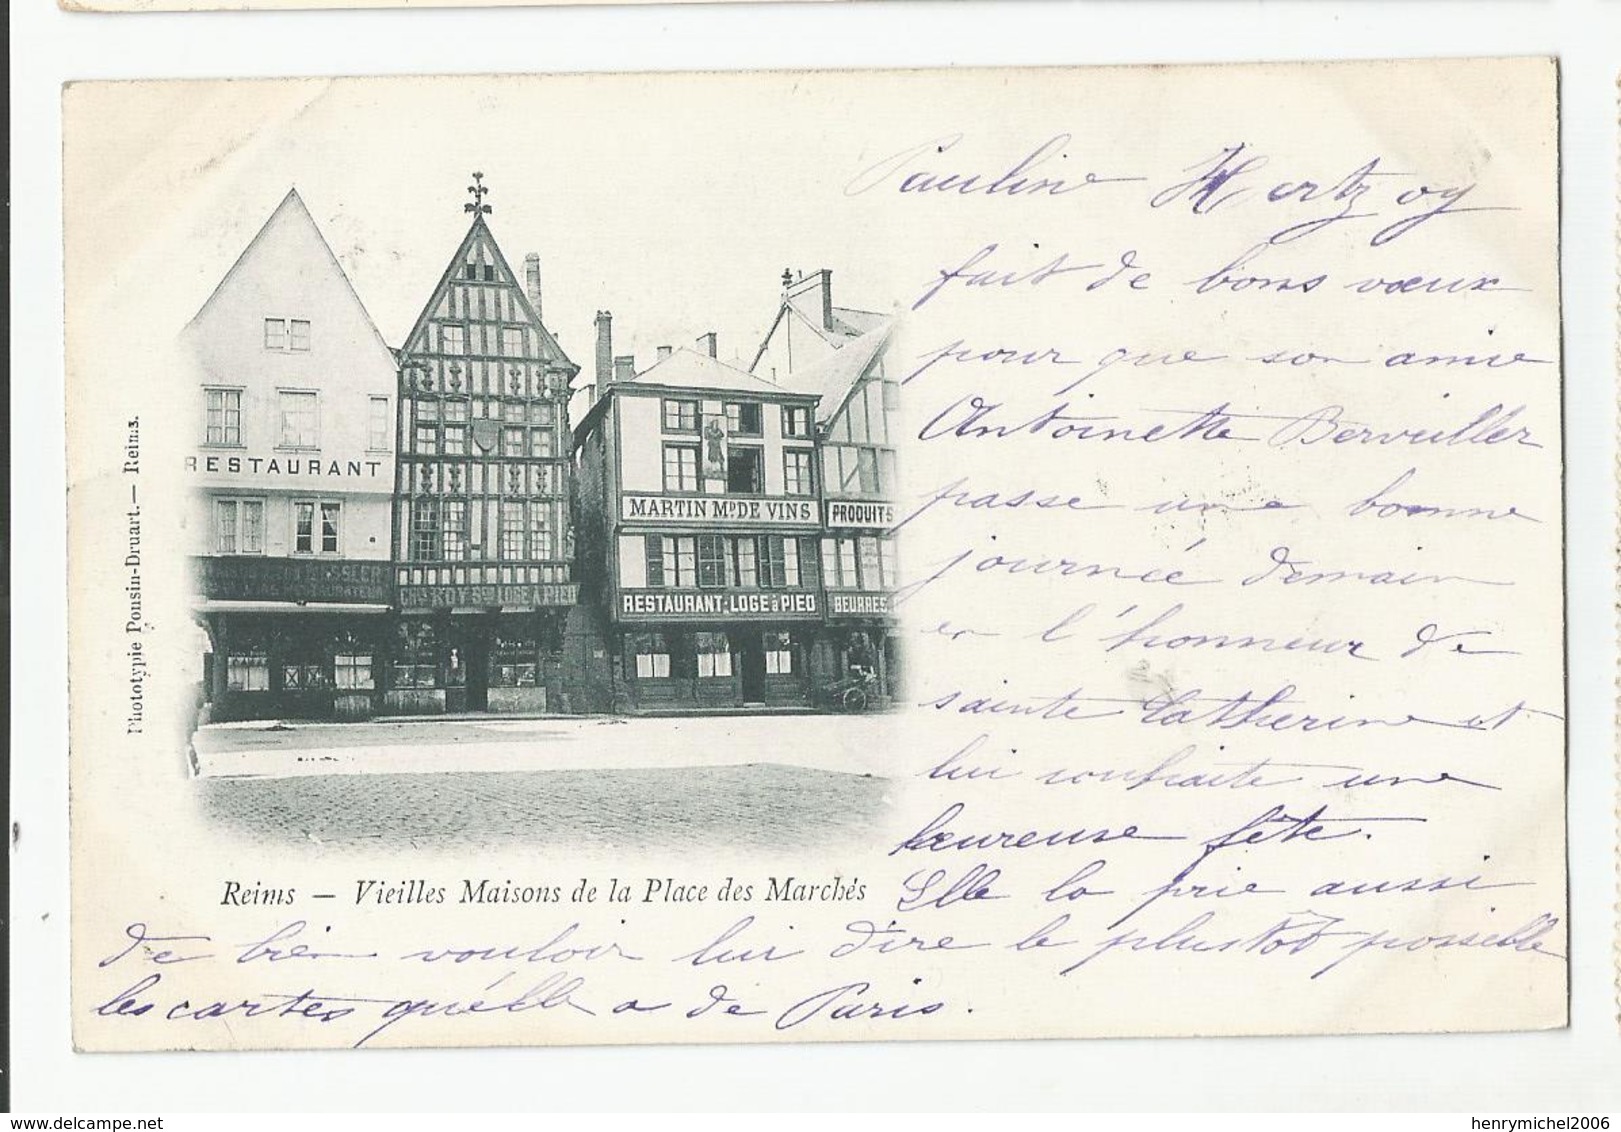 Pauline Hertzog
fait de bons vœux
pour que son amie
Antoinette Berveiller
passe une bonne
journée demain
en l'honneur de
sainte Catherine et
lui souhaite une
heureuse fête.
Elle la prie aussi
de bien vouloir lui dire le plustôt possible
les cartes qu'élle a de Paris.
RESTAURANT
CH ROY LOGE À PIED
MARTIN MD DE VINS
PRODUITS
RESTAURANT-LOGE à PIED
BEURRES
Phototypie Ponsin-Druart.— Reims.
Reims — Vieilles Maisons de la Place des Marchés
www.delcampe.net
henrymichel2006